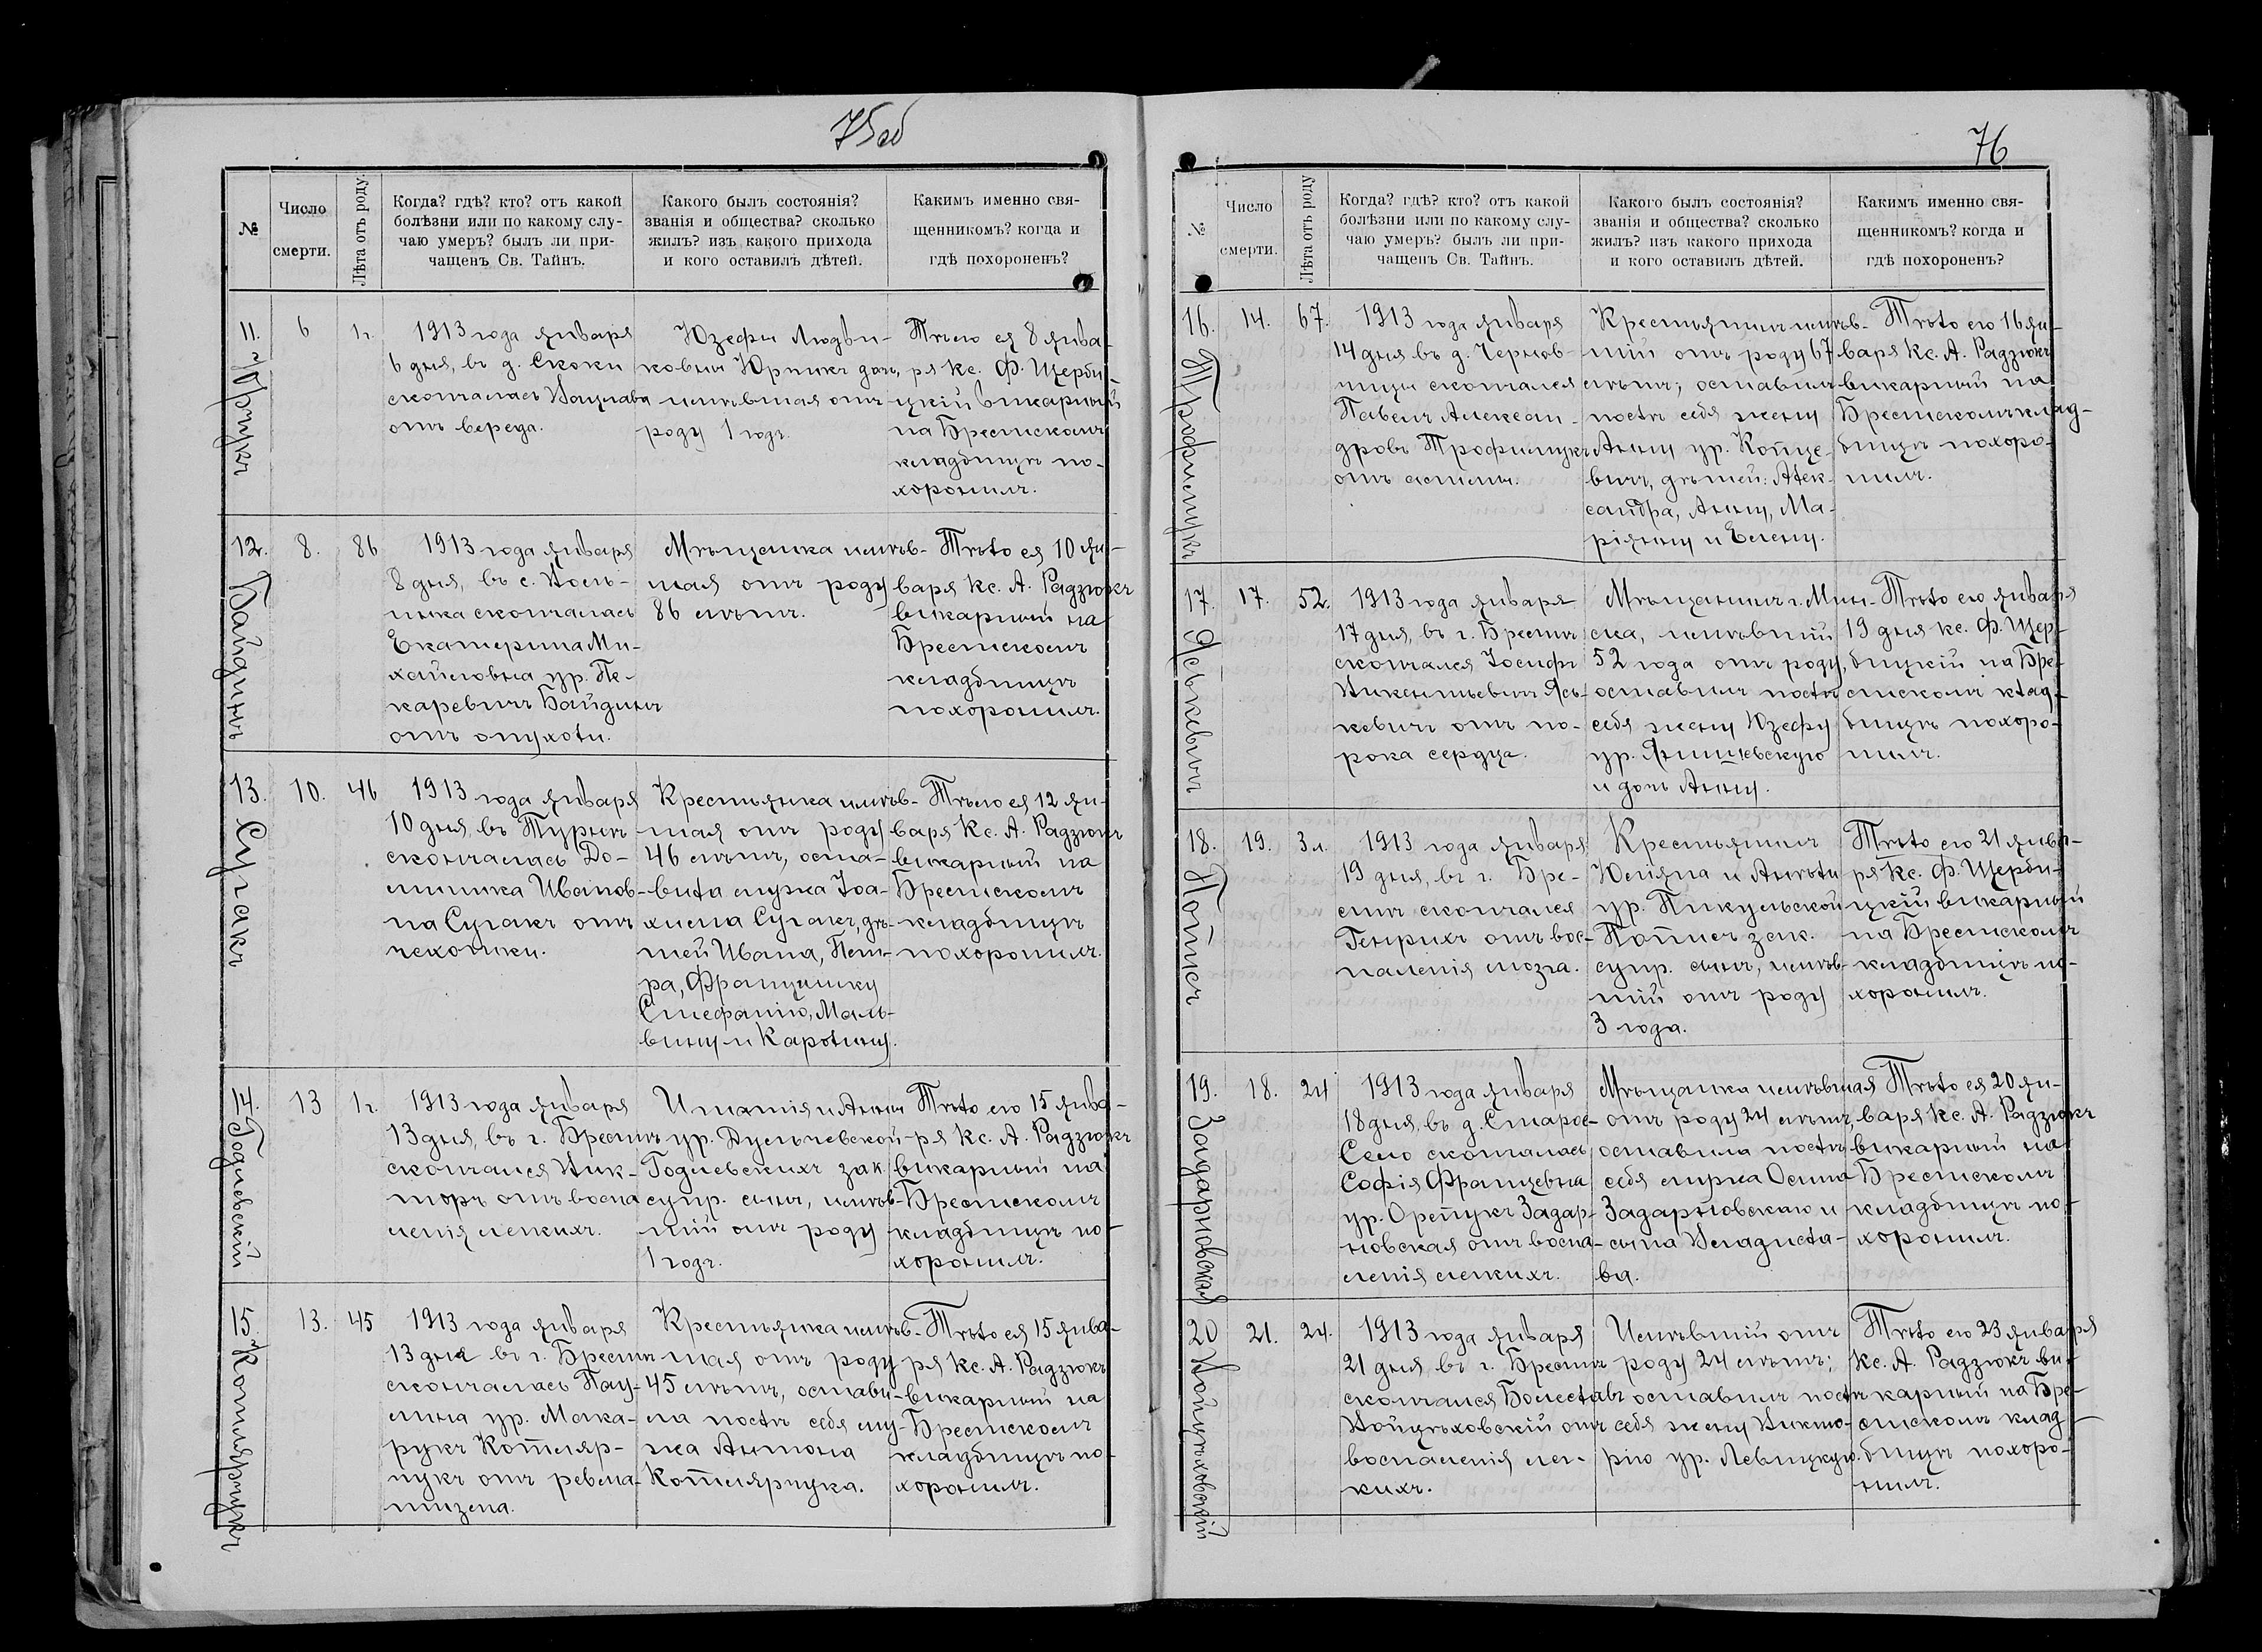 75об
№
Число
смерти.
Лѣта отъ роду.
Когда? гдѣ? кто? отъ какой
болѣзни или по какому слу-
чаю умеръ? былъ ли при-
чащенъ Св. Тайнъ.
Какого былъ состоянія?
званія и общества? сколько
жилъ? изъ какого прихода
и кого оставилъ дѣтей.
Какимъ именно свя-
щенникомъ? когда и
гдѣ похороненъ?
11.
Юрчукъ
6
1г.
1913 года января
6 дня, въ д. Скоки
скончалась Вацлава
отъ вереда.
Юзефы Людви-
ковны Юрчукъ дочь,
имѣвшая отъ
роду 1 годъ.
Тѣло ея 8 янва-
ря кс. Ф. Щерби-
цкій викарный
на Брестскомъ
кладбищѣ по-
хоронилъ.
12.
Байдинъ
8.
86
1913 года января
8 дня, въ с. Воль-
нка скончалась
Екатерина Ми-
хайловна ур. Пе-
каревичъ Байдинъ
отъ опухоли.
Мѣщанка имѣв-
шая отъ роду
86 лѣтъ.
Тѣло ея 10 ян-
варя кс. А. Радзюкъ
викарный на
Брестскомъ
кладбищѣ
похоронилъ.
13.
Сугакъ
10.
46
1913 года января
10 дня, въ Турнѣ
скончалась До-
миника Иванов-
на Сугакъ отъ
чахотки.
Крестьянка имѣв-
шая отъ роду
46 лѣтъ, оста-
вила мужа Іоа-
хима Сугакъ, дѣ-
тей Ивана, Пет-
ра, Францишку
Стефанію, Маль-
вину и Каролину.
Тѣло ея 12 ян-
варя кс. А. Радзюкъ
викарный на
Брестскомъ
кладбищѣ
похоронилъ.
14.
Годлевскій
13
1г.
1913 года января
13 дня, въ г. Брестѣ
скончался Вик-
торъ отъ воспа
ленія легкихъ.
Игнатія и Анны
ур. Дульчевской-
Годлевскихъ зак.
супр. сынъ, имѣв-
шій отъ роду
1 годъ.
Тѣло его 15 янва-
ря кс. А. Радзюкъ
викарный на
Брестскомъ
кладбищѣ по-
хоронилъ.
15.
Котлярчукъ
13.
45
1913 года января
13 дня въ г. Брестѣ
скончалась Пау-
лина ур. Мака-
рукъ Котляр-
чукъ отъ ревма-
тизма.
Крестьянка имѣв-
шая отъ роду
45 лѣтъ, остави-
ла послѣ себя му-
жа Антона
Котлярчука.
Тѣло ея 15 янва-
ря кс. А. Радзюкъ
викарный на
Брестскомъ
кладбищѣ по-
хоронилъ.
76
№
Число
смерти.
Лѣта отъ роду
Когда? гдѣ? кто? отъ какой
болѣзни или по какому слу-
чаю умеръ? былъ ли при-
чащенъ Св. Тайнъ.
Какого былъ состоянія?
званія и общества? сколько
жилъ? изъ какого прихода
и кого оставилъ дѣтей.
Какимъ именно свя-
щенникомъ? когда и
гдѣ похороненъ?
16.
Трофимукъ
14.
67.
1913 года января
14 дня въ д. Чернов-
чицы скончался
Павелъ Алексан-
дровъ Трофимукъ
отъ астмы.
Крестьянинъ имѣв-
шій отъ роду 67
лѣтъ; оставилъ
послѣ себя жену
Анну ур. Копце-
вичъ, дѣтей: Алек-
сандра, Анну, Ма-
ріянну и Елену.
Тѣло его 16 ян-
варя кс. А. Радзюкъ
викарный на
Брестскомъ клад-
бищѣ похоро-
нилъ.
17.
Яськевичъ
17.
52.
1913 года января
17 дня, въ г. Брестѣ
скончался Іосифъ
Викентьевичъ Ясь-
кевичъ отъ по-
рока сердца.
Мѣщанинъ г. Мин-
ска, имѣвшій
52 года отъ роду,
оставилъ послѣ
себя жену Юзефу
ур. Янишевскую
и дочь Анну.
Тѣло его января
19 дня кс. Ф. Щер-
бицкій на Бре-
стскомъ клад-
бищѣ похоро-
нилъ.
18.
19.
3л.
1913 года января
19 дня, въ г. Бре-
стѣ скончался
Генрихъ отъ вос-
паленія мозга.
Крестьянинъ
Юліяна и Анѣли
ур. Пикульской
зак.
супр. сынъ, имѣв-
шій отъ роду
3 года.
Тѣло его 21 янва-
ря кс. Ф. Щерби-
цкій викарный
на Брестскомъ
кладбищѣ по-
хоронилъ.
19.
Задарновская
18.
24
1913 года января
18 дня, въ д. Старое-
Село скончалась
Софія Францевна
ур. Орепукъ Задар-
новская отъ воспа-
ленія легкихъ.
Мѣщанка имѣвшая
отъ роду 24 лѣтъ,
оставила послѣ
себя мужа Осипа
Задарновскаго и
сына Владисла-
ва.
Тѣло ея 20 ян-
варя кс. А. Радзюкъ
викарный на
Брестскомъ
кладбищѣ по-
хоронилъ.
20
Войцѣховскій
21.
24.
1913 года января
21 дня, въ г. Брестѣ
скончался Болеславъ
Войцѣховскій отъ
воспаленія лег-
кихъ.
Имѣвшій отъ
роду 24 лѣтъ;
оставилъ послѣ
себя жену Викто-
рію ур. Левицкую.
Тѣло его 23 января
кс. А. Радзюкъ ви-
карный на Бре-
стскомъ клад-
бищѣ похоро-
нилъ.